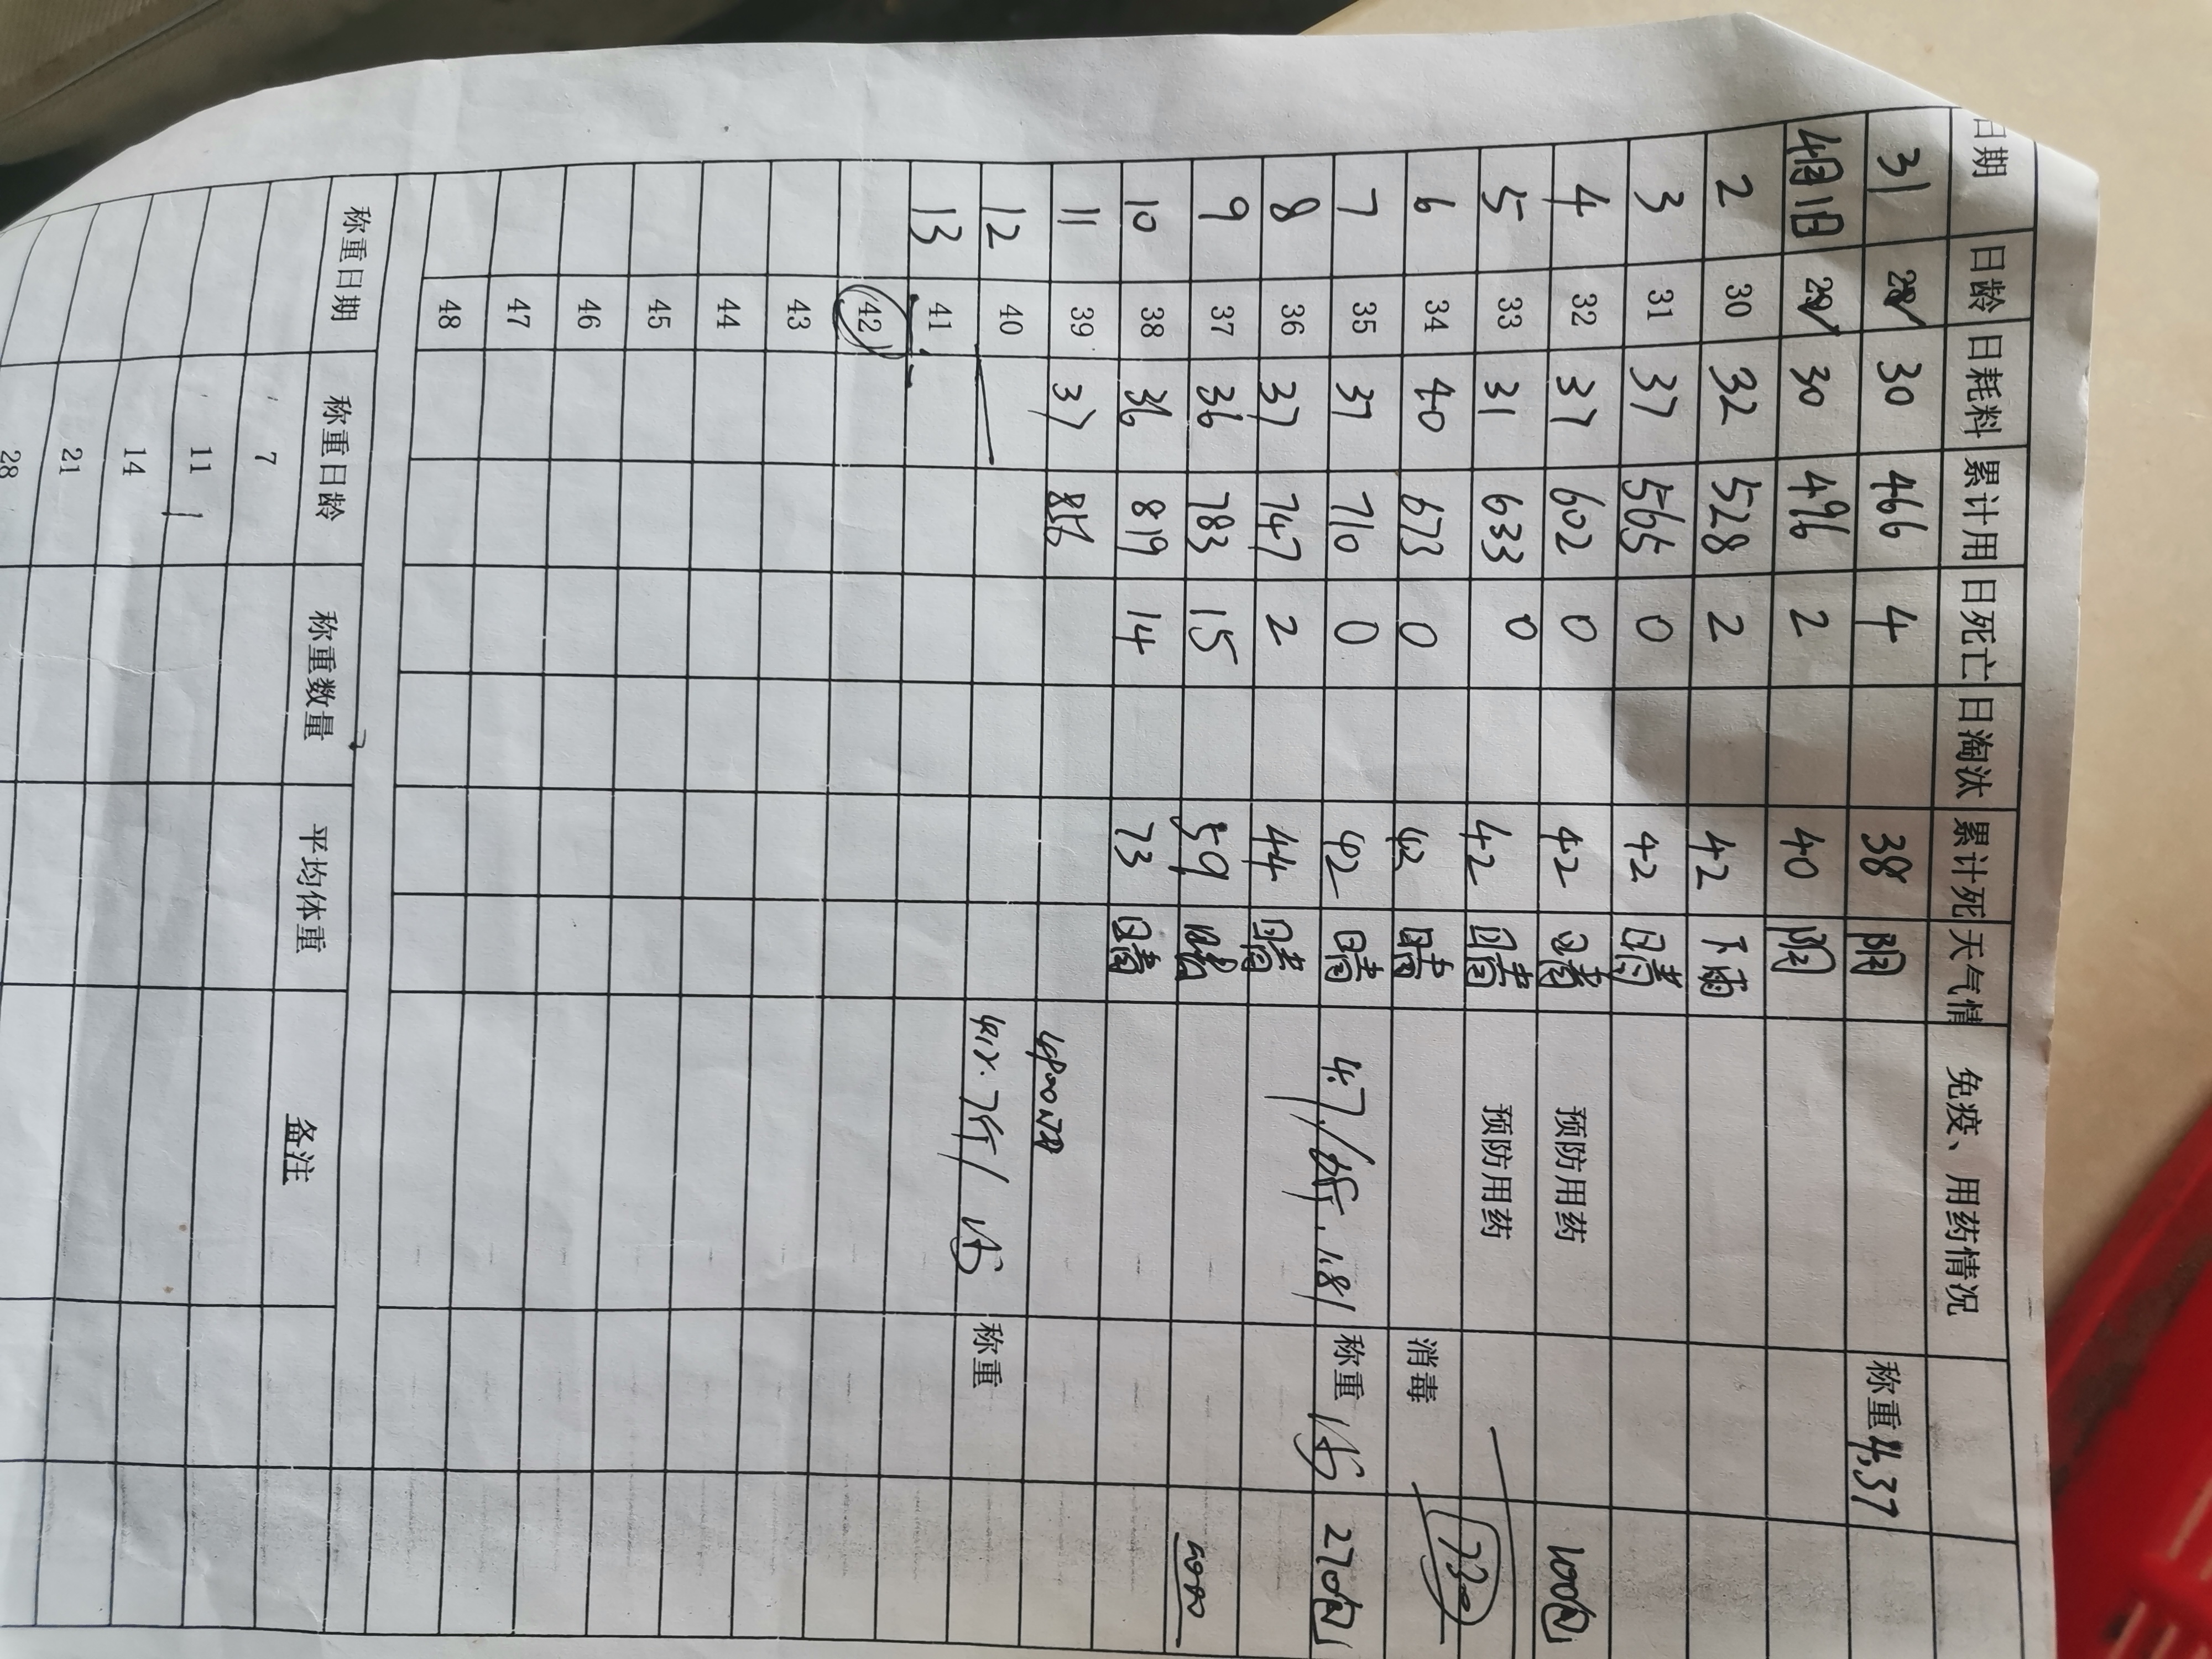 日期 日龄 日耗料 累计用 日死亡 日淘汰 累计死 天气情 免疫、用药情况
31 28 30 466 4 38 阴 称重4.37
4月1日 29 30 496 2 40 阴
2 30 32 528 2 42 下雨
3 31 37 565 0 42 晴
4 32 37 602 0 42 晴 预防用药 100包
5 33 31 633 0 42 晴 预防用药
6 34 40 673 0 42 晴 消毒 730
7 35 37 710 0 42 晴 4.7 1.81 称重 270包
8 36 37 747 2 44 晴
9 37 36 783 15 59
10 38 36 819 14 73 晴
11 39 37 856
12 40 称重
13 41
42
43
44
45
46
47
48
称重日期 称重日龄 称重数量 平均体重 备注
7
11
14
21
28